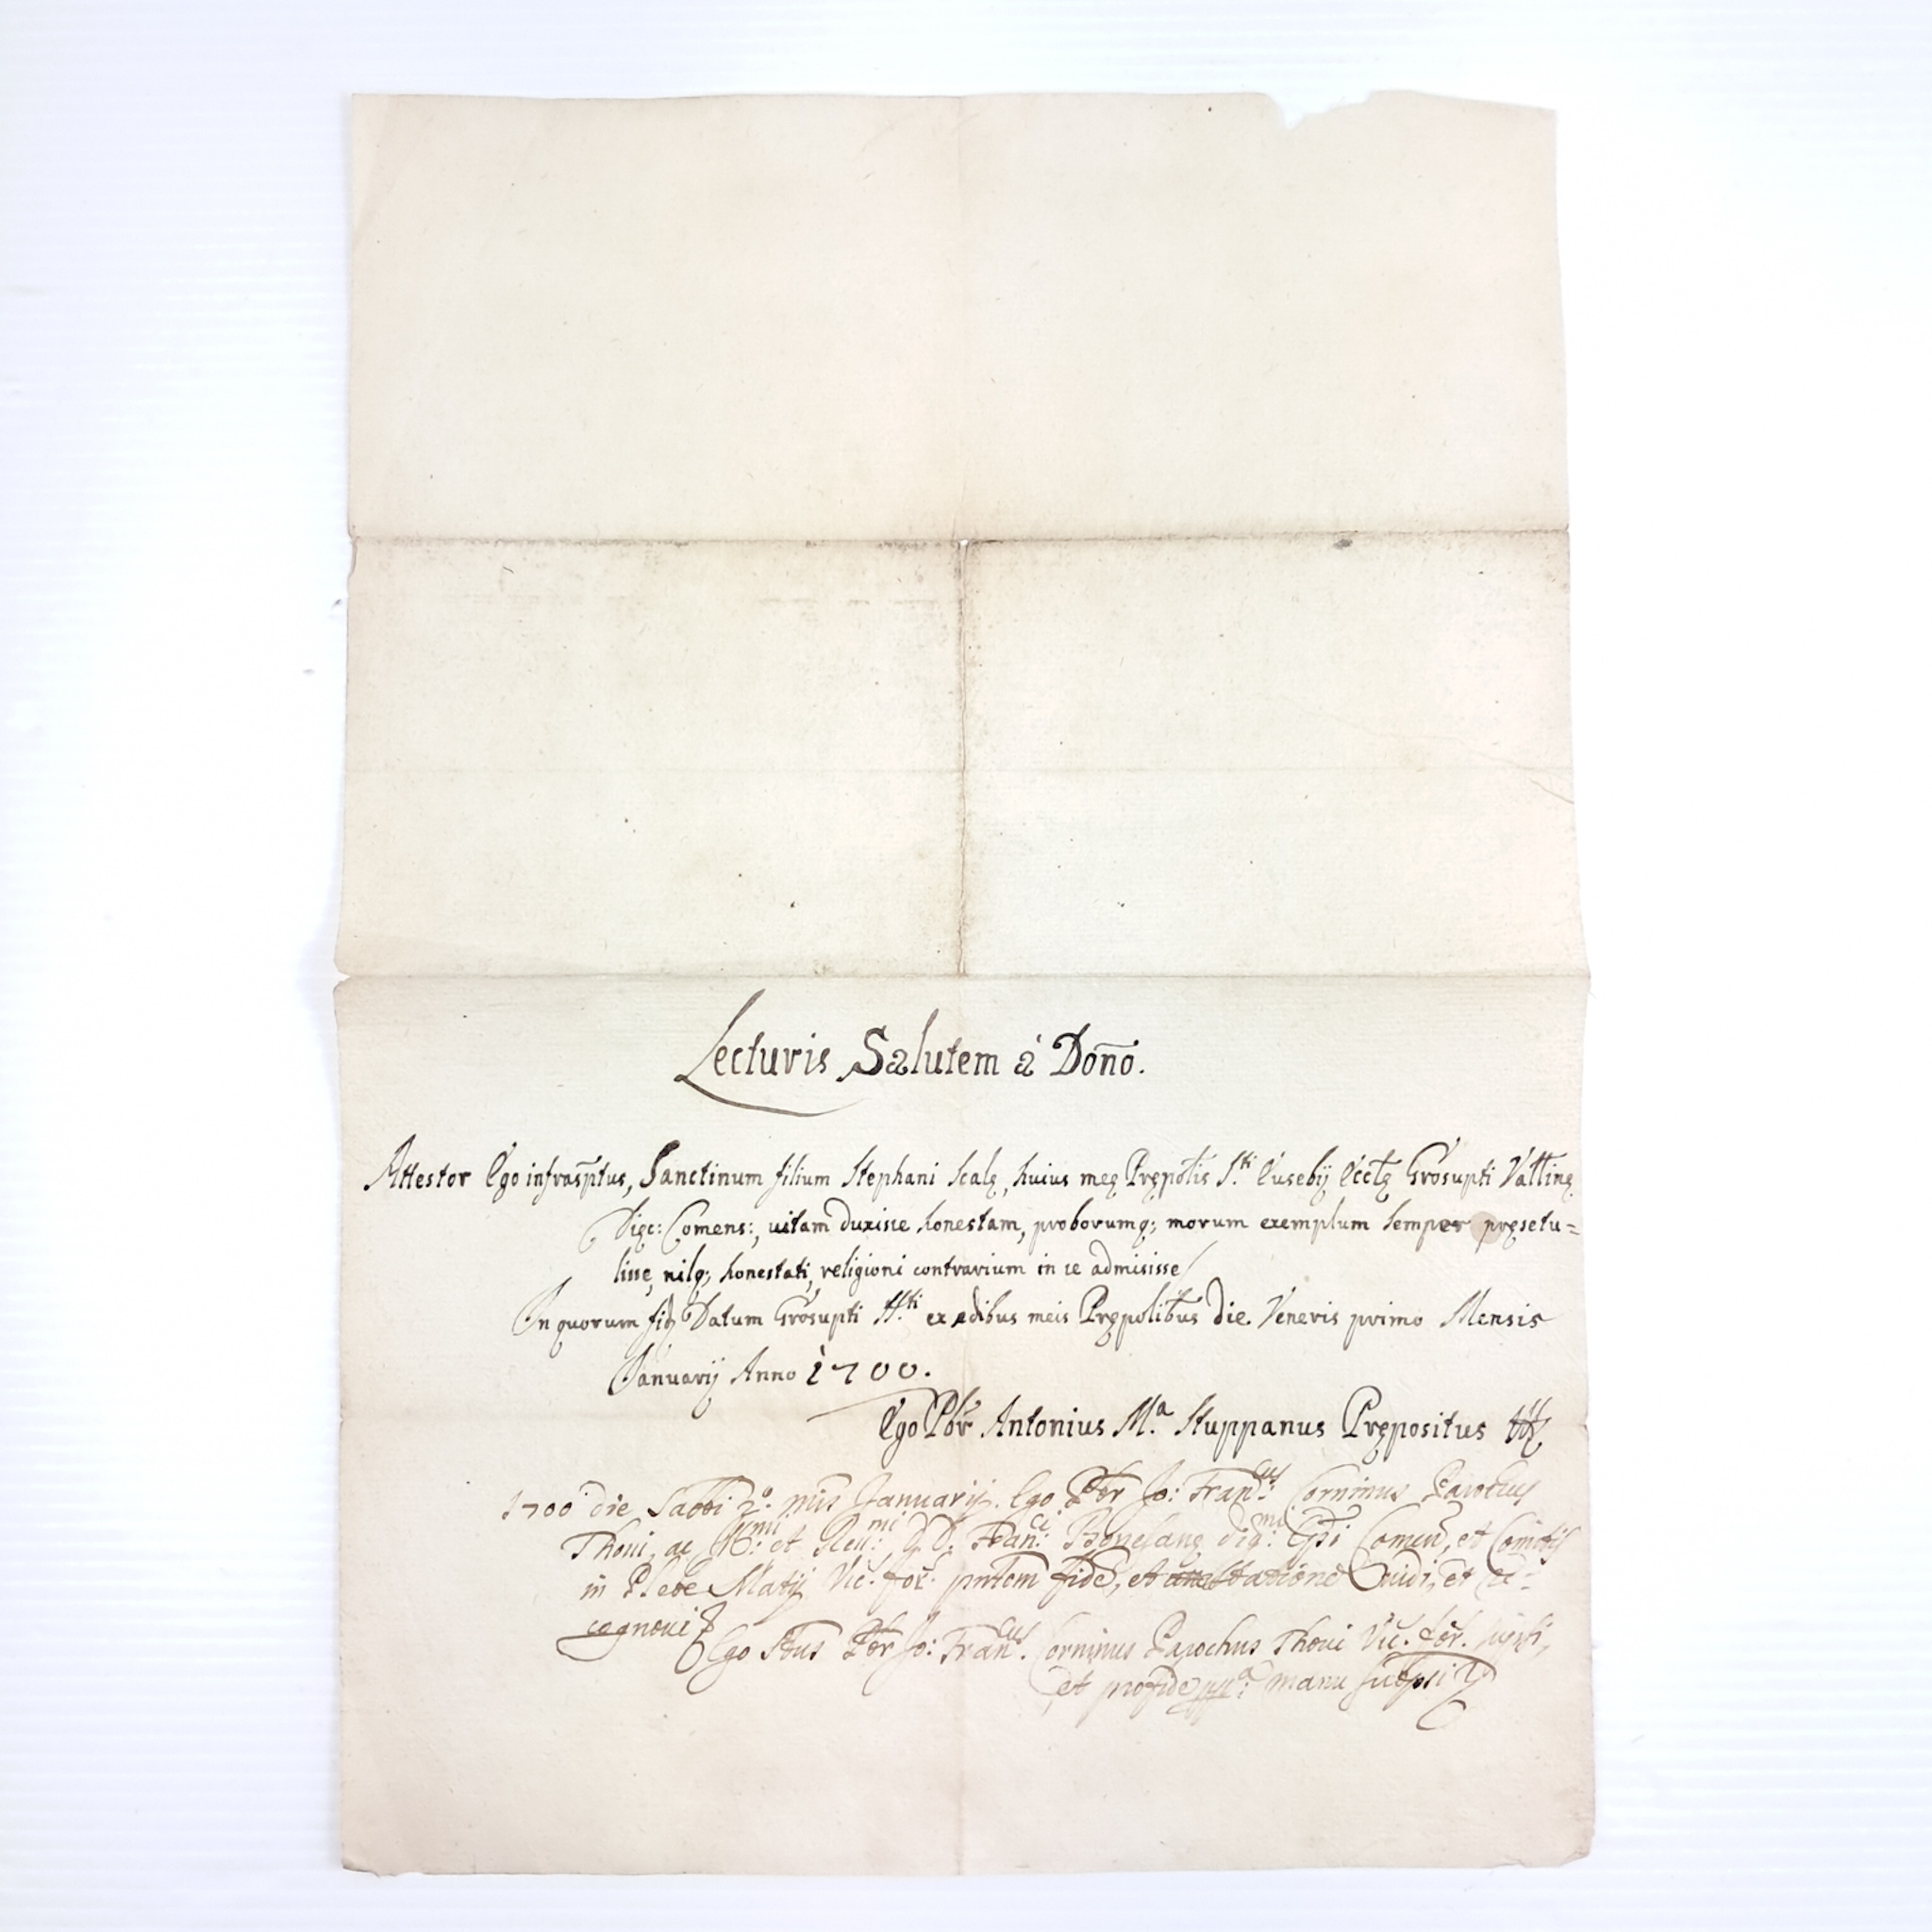 Lecturis Salutem à Dōno.
Attestor Ego infrasp̄tus, Sanctinum filium Stephani Scalę, huius meę Prępōlis S.ti Eusebij Eccłę Grōsupti Vałłinę
Dięc: Comens:, uitam duxisse honestam, proborumq; morum exemplum semper pręsetu=
lisse, nilq; honestati, religioni contrarium in se admisisse
In quorum fid Datum Grōsupti tt.ti ex ędibus meis Prępolibus die Veneris primo Mensis
Januarij Anno 1700.
Ego Pbr Antonius M.a Stuppanus Prępositus
1700 die Sabbi 2.o mis Januarij. Ego Pbr Jo: Fran.cus Corninus Parochus
Thoui, ac Ill.mi et Reu.mi D. D. Fran.ci Bonesanę dig.mi Epi Comen, et Comitis
in Plebe Matij Vic. for. pntem fide, et attestatione uidi, et re=
cognoui
Ego Pbr Jo: Fran.cus Corninus Parochus Thoui Vic. for.
et pro fide manu